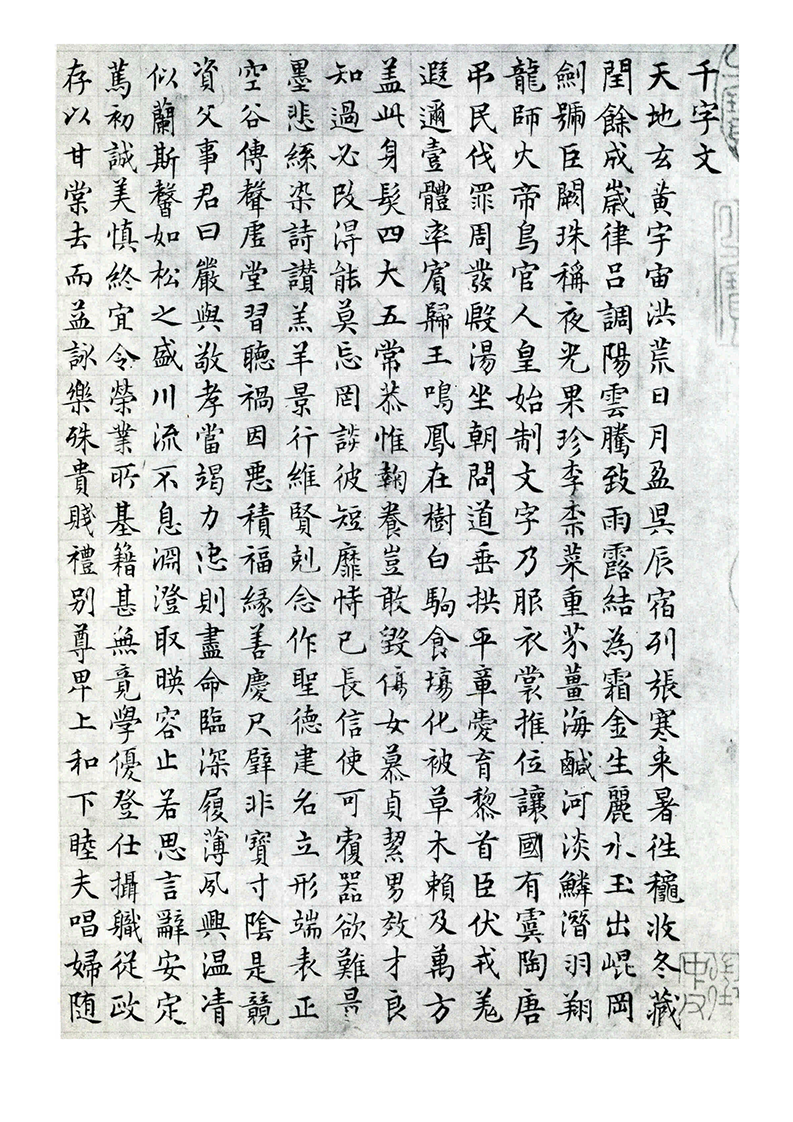 千字文
天地玄黃宇宙洪荒日月盈昃辰宿列張寒来暑往穐收冬藏
閏餘成歲律呂調陽雲騰致雨露結為霜金生麗水玉出崐岡
劍號巨闕珠稱夜光果珍李柰菜重芥薑海鹹河淡鱗潛羽翔
龍師火帝鳥官人皇始制文字乃服衣裳推位讓國有虞陶唐
弔民伐罪周發殷湯坐朝問道垂拱平章愛育黎首臣伏戎羌
遐邇壹體率賓歸王鳴鳳在樹白駒食場化被草木賴及萬方
盖此身髮四大五常恭惟鞠養豈敢毀傷女慕貞絜男效才良
知過必改得能莫忘罔談彼短靡恃己長信使可覆器欲難量
墨悲絲染詩讚羔羊景行維賢剋念作聖德建名立形端表正
空谷傳聲虛堂習聽禍因惡積福緣善慶尺璧非寶寸陰是競
資父事君曰嚴與敬孝當竭力忠則盡命臨深履薄夙興温凊
似蘭斯馨如松之盛川流不息淵澄取暎容止若思言辭安定
篤初誠美慎終宜令榮業所基籍甚無竟學優登仕攝職從政
存以甘棠去而益詠樂殊貴賤禮别尊卑上和下睦夫唱婦随